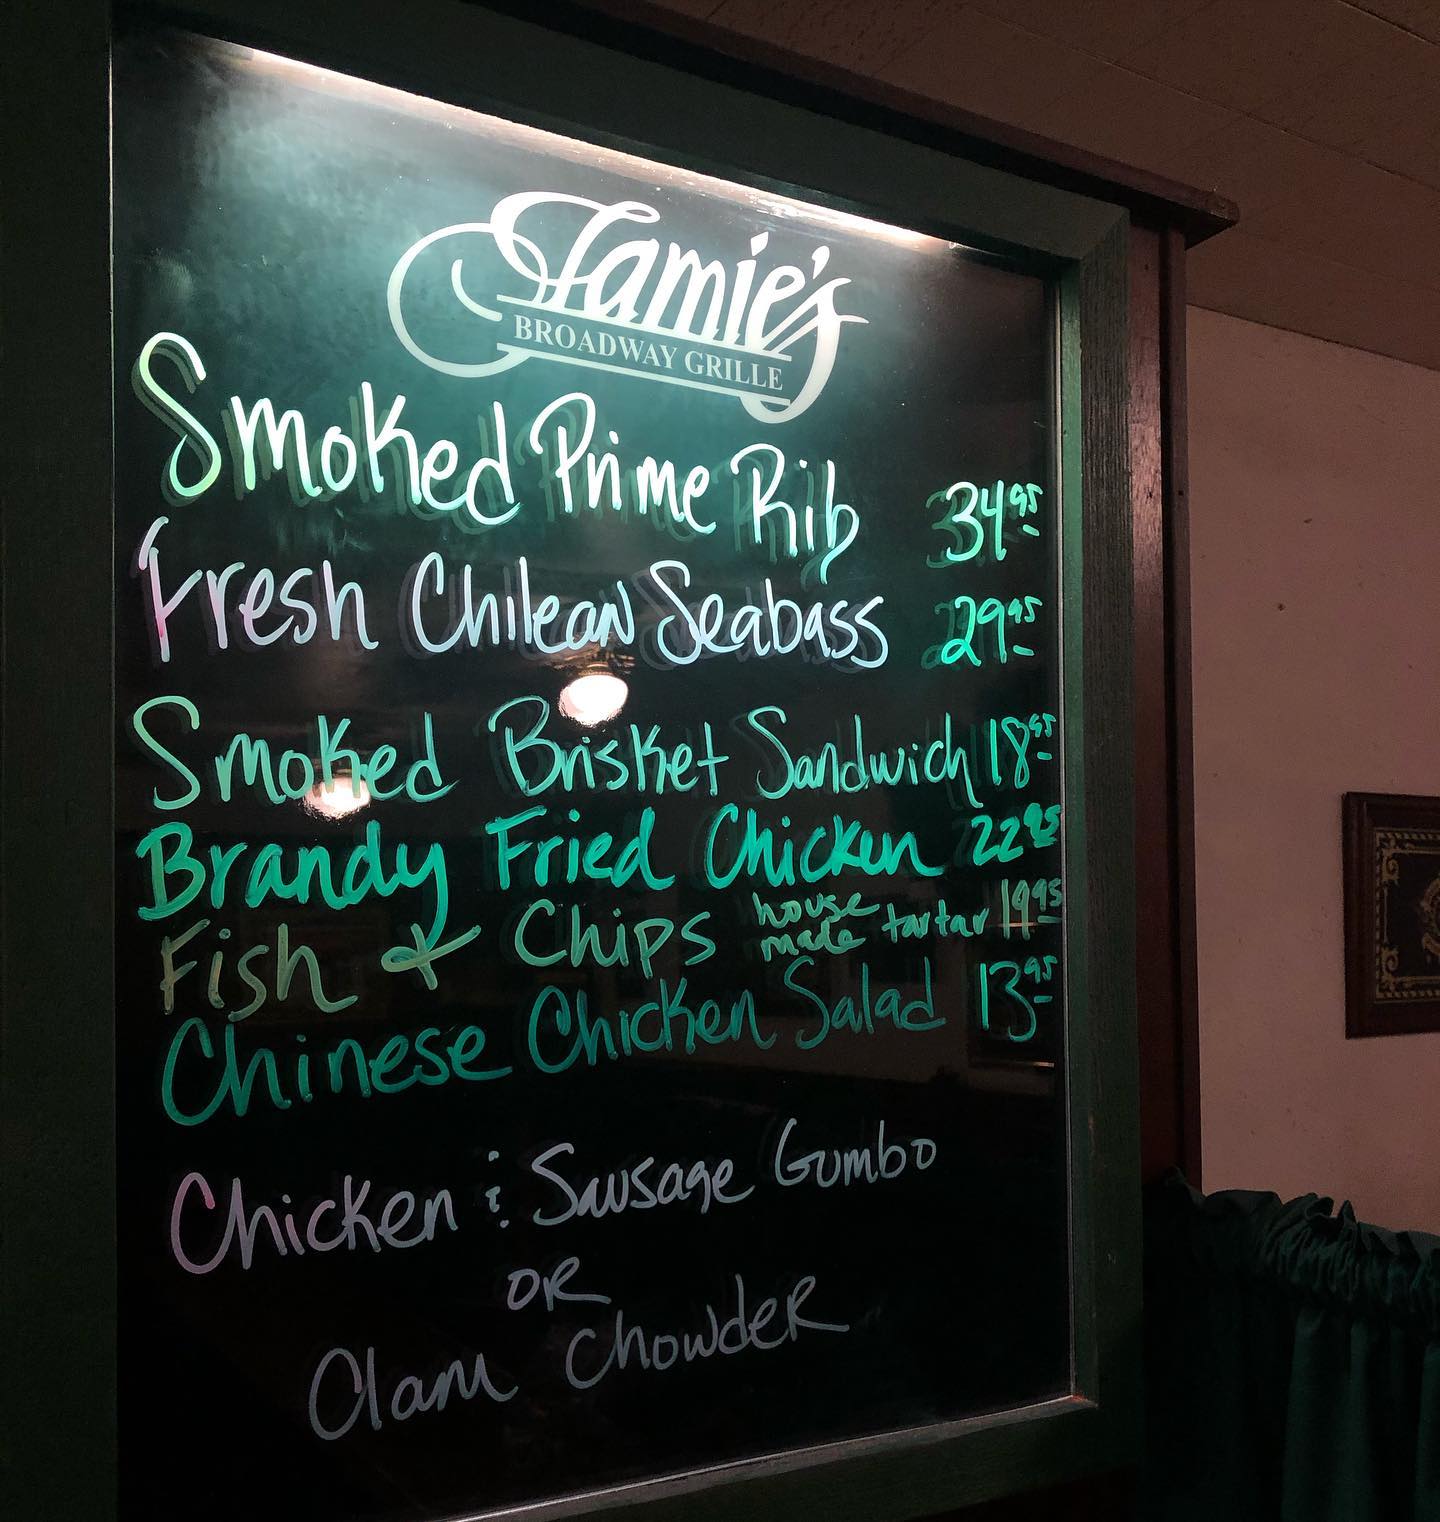 Jamie's
BROADWAY GRILLE
Smoked Prime Rib 34.95
Fresh Chilean Seabass 29.95
Smoked Brisket Sandwich 18.95
Brandy Fried Chicken 22.95
Fish & Chips house made tartar 19.95
Chinese Chicken Salad 13.95
Chicken & Sausage Gumbo
OR
Clam Chowder